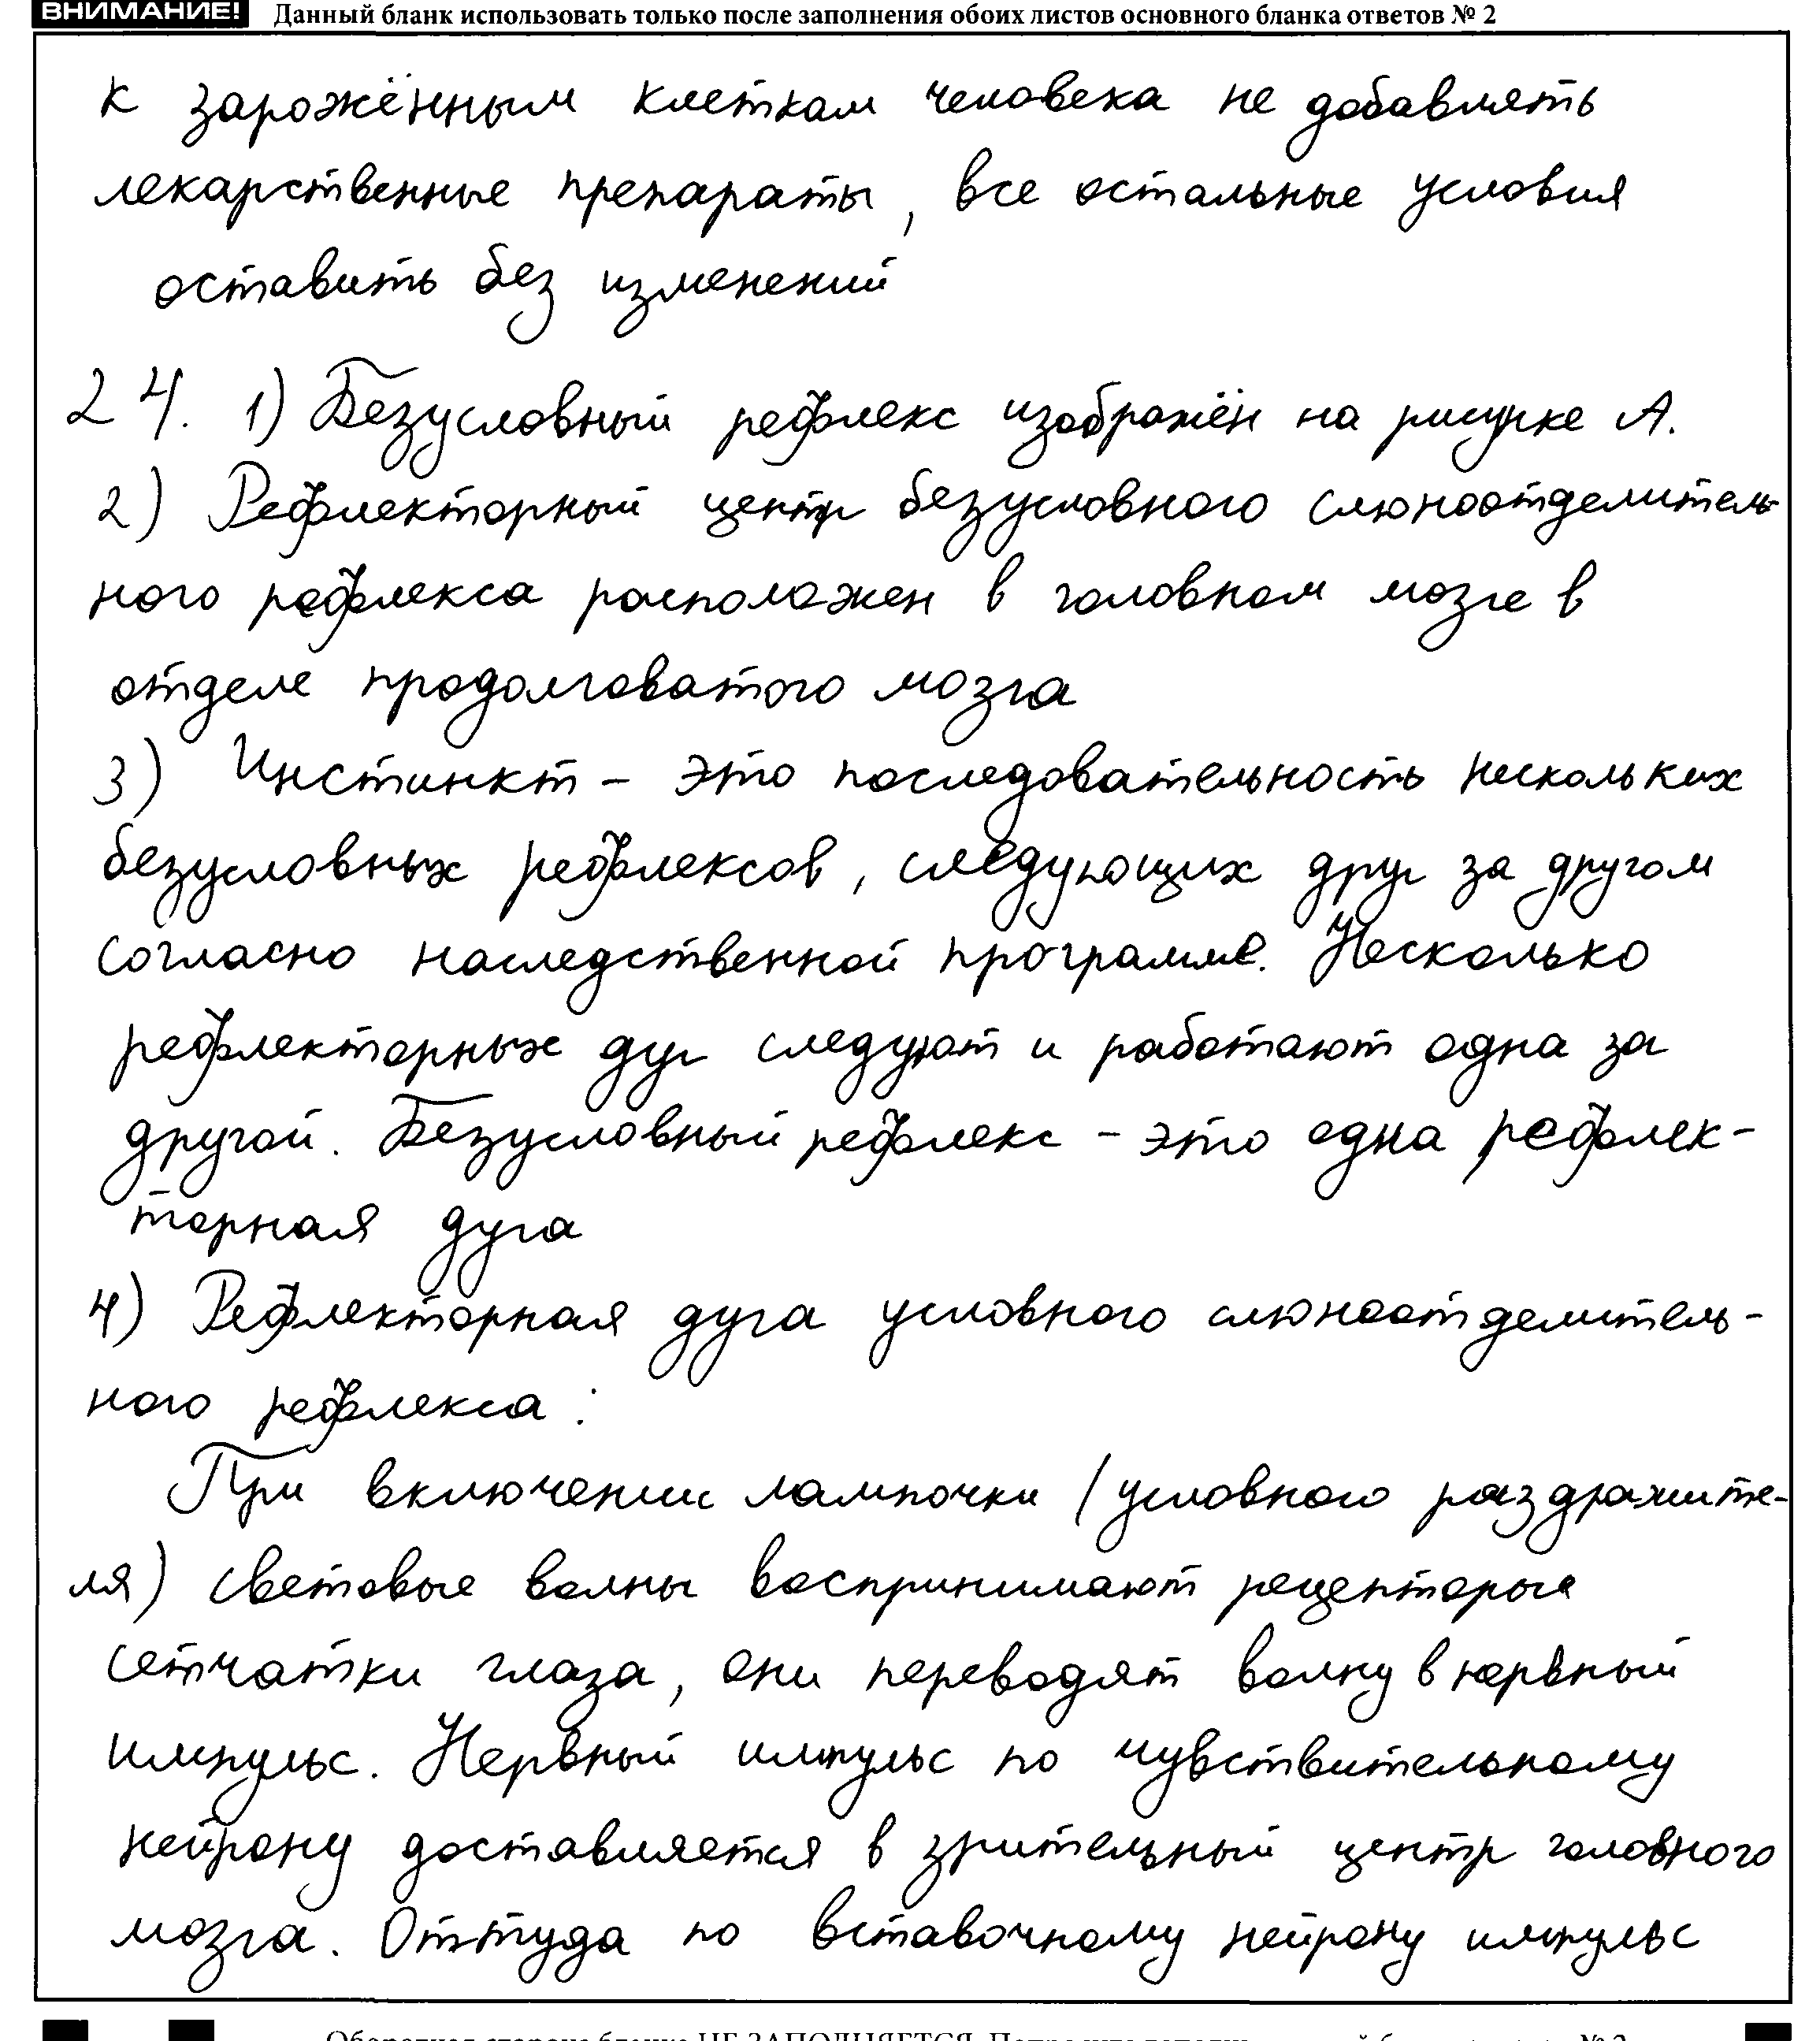 ВНИМАНИЕ! Данный бланк использовать только после заполнения обоих листов основного бланка ответов № 2
к зарожённым клеткам человека не добавлять
лекарственные препараты, все остальные условия
оставить без изменений
24. 1) Безусловный рефлекс изображён на рисунке А.
2) Рефлекторный центр безусловного слюноотделитель-
ного рефлекса расположен в головном мозге в
отделе продолговатого мозга
3) Инстинкт – это последовательность нескольких
безусловных рефлексов, следующих друг за другом
согласно наследственной программе. Несколько
рефлекторных дуг следуют и работают одна за
другой. Безусловный рефлекс – это одна рефлек-
торная дуга
4) Рефлекторная дуга условного слюноотделитель-
ного рефлекса:
При включении лампочки (условного раздражите-
ля) световые волны воспринимают рецепторы
сетчатки глаза, они переводят волну в нервный
импульс. Нервный импульс по чувствительному
нейрону доставляется в зрительный центр головного
мозга. Оттуда по вставочному нейрону импульс